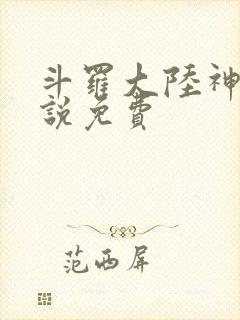 斗羅大陸神
說免費
范西屏